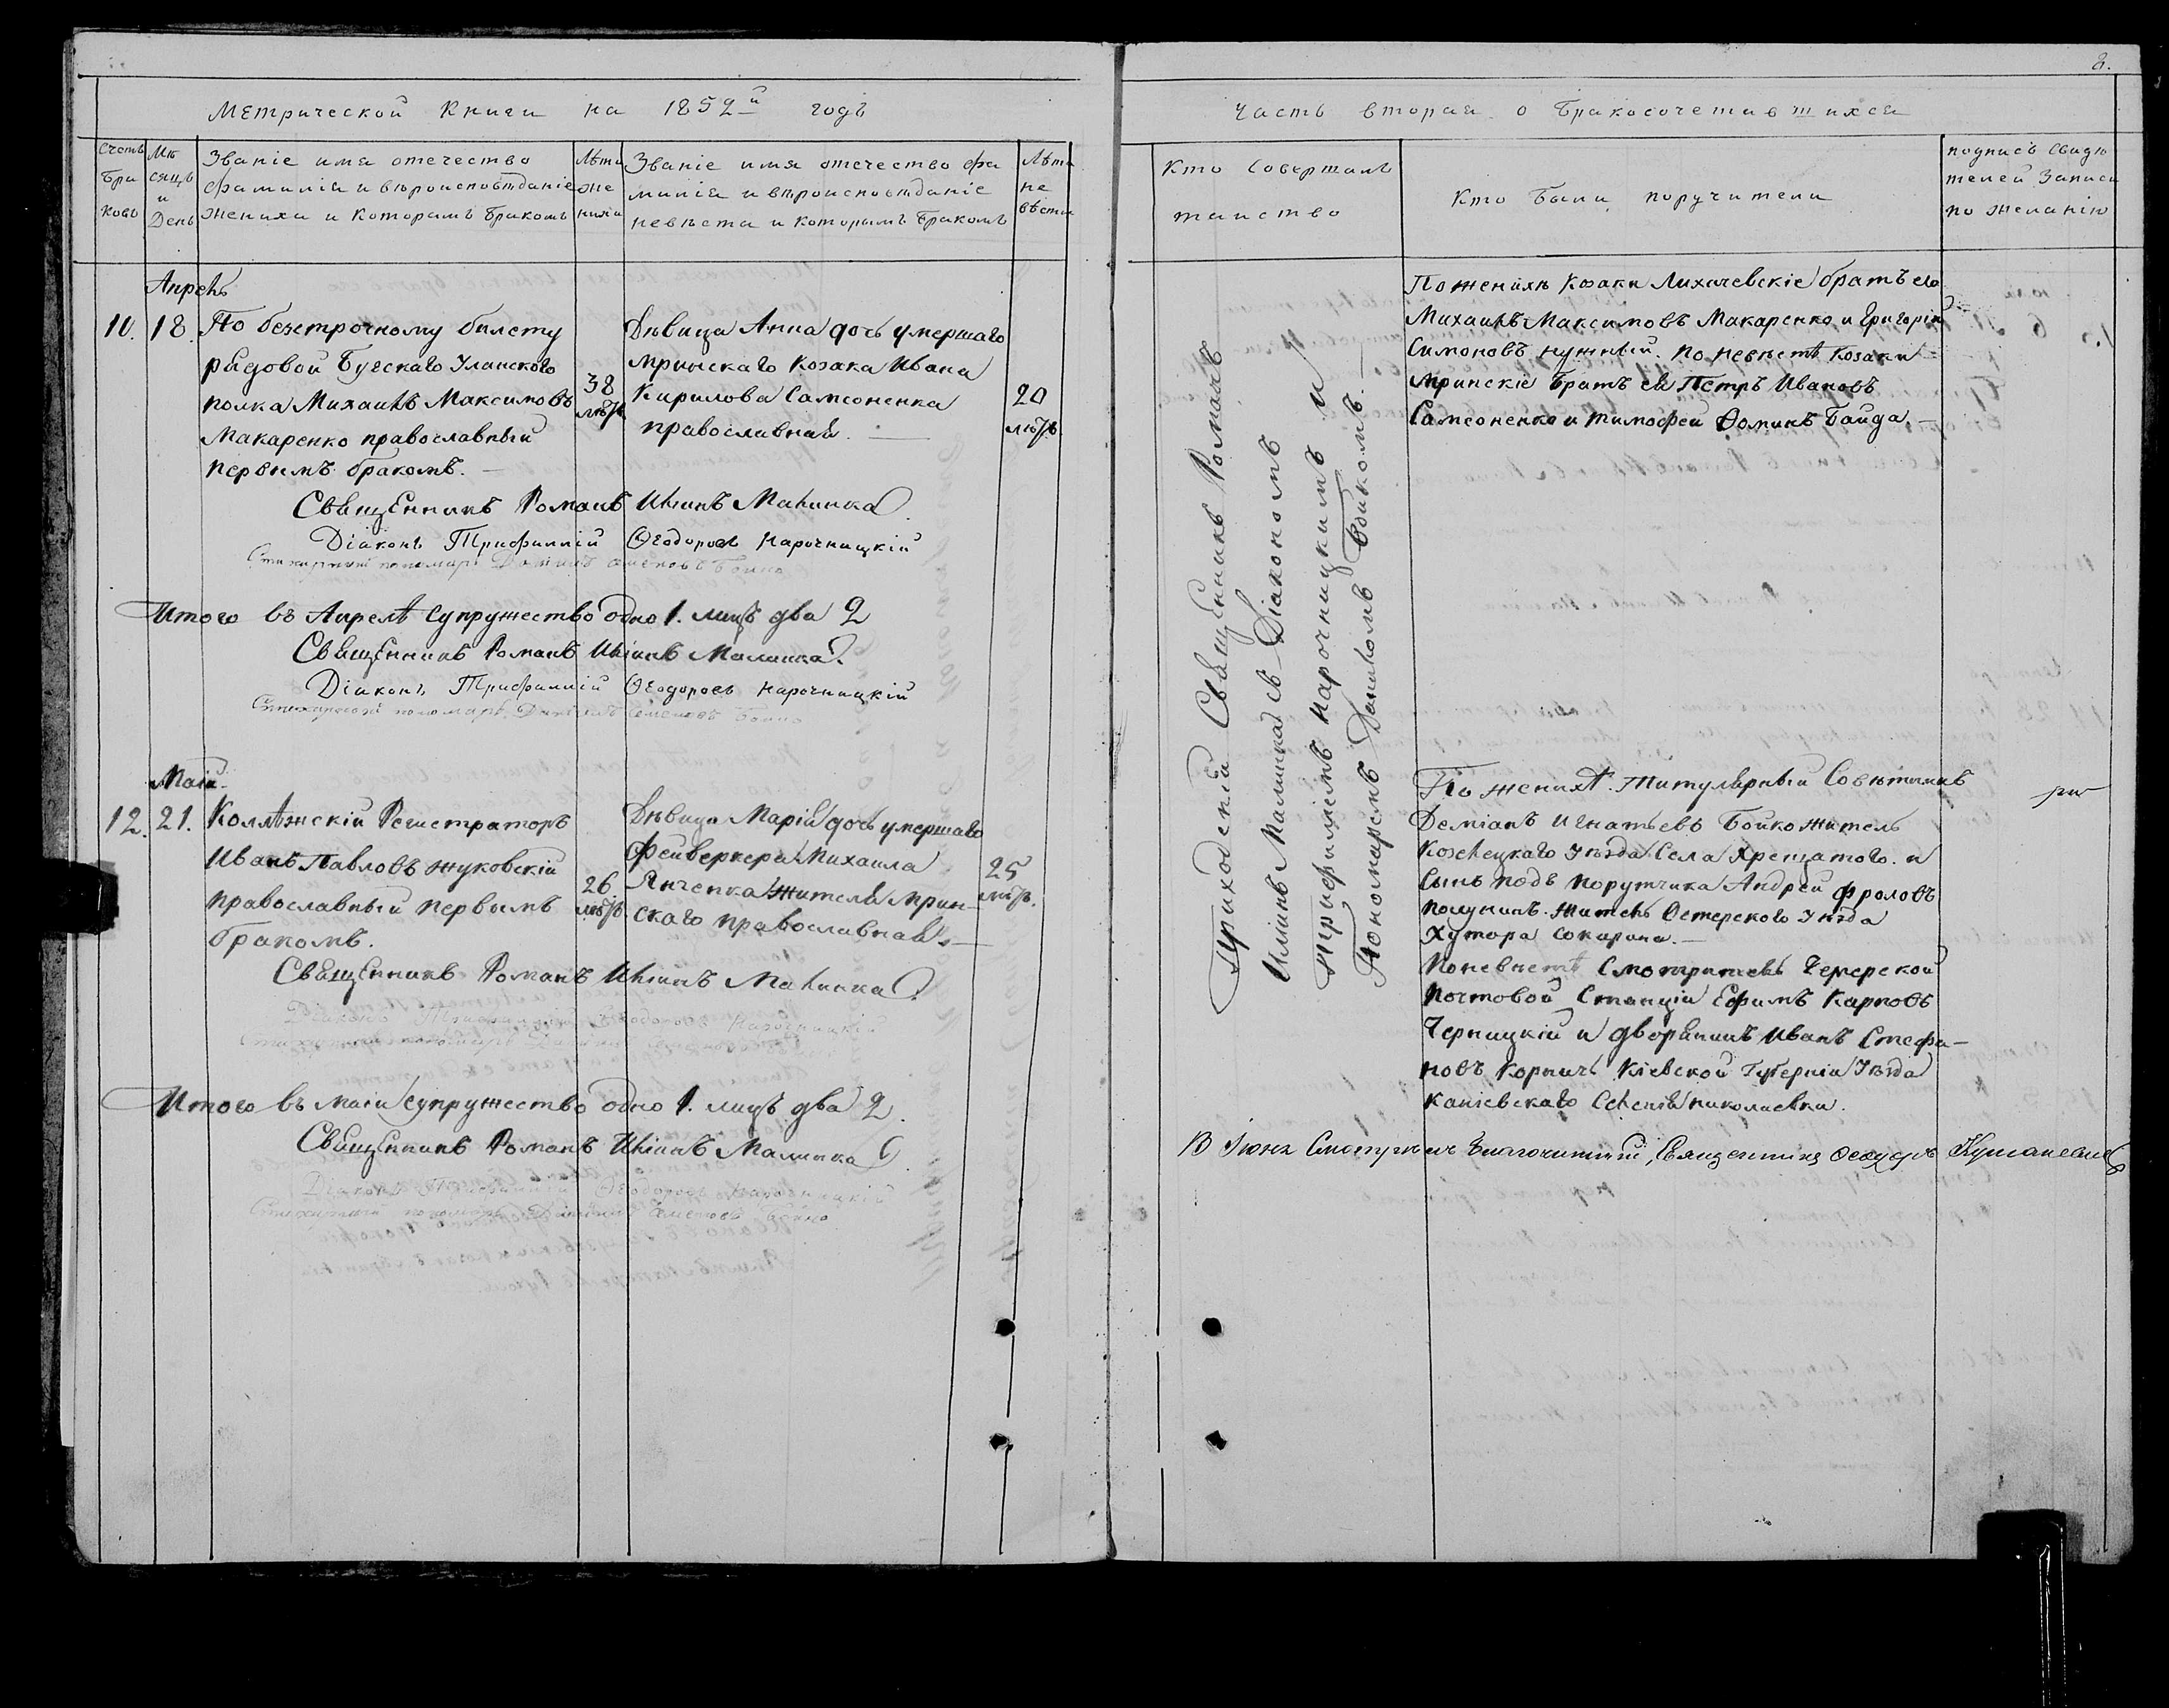 Метрической Книги на 1852й годъ
Счетъ браковъ
Мѣсяцъ и День
Званіе имя отечество
фамилія и вѣроисповѣданіе
жениха и которымъ бракомъ
Лѣта жениха
Званіе имя отечество фа
милія и вѣроисповѣданіе
невѣста и которымъ бракомъ
Лѣта невѣсты
Апрель
10. 18. По безсрочному билету
рядовой Бугскаго Уланского
полка Михаилъ Максимовъ
Макаренко православный
первымъ бракомъ.
38 лѣтъ
Дѣвица Анна дочь умершаго
мринскаго козака Ивана
Кирилова Самсоненка
православная.
20 лѣтъ.
Священникъ Романъ Иліинъ Малинка
Діаконъ Трифиллій Ѳеодоровъ Нарочницкій
Стихарный пономарь Даніилъ Семеновъ Бойко
Итого въ Апрелѣ супружество одно 1. лицъ два 2
Священникъ Романъ Иліинъ Малинка
Діаконъ Трифиллій Ѳеодоровъ Нарочницкій
Стихарный пономарь Даніилъ Семеновъ Бойко
Маій
12. 21. Коллѣжскій Регистраторъ
Иванъ Павловъ Жуковскій
православный первымъ
бракомъ.
26 лѣтъ.
Дѣвица Марія дочь умершаго
фейверкера Михаила
Янченка жителя мрин-
скаго православная.
25 лѣтъ.
Священникъ Романъ Иліинъ Малинка
Діаконъ Трифиллій Ѳеодоровъ Нарочницкій
Стихарный пономарь Даніилъ Семеновъ Бойко
Итого въ маіи супружество одно 1. лицъ два 2.
Священникъ Романъ Иліинъ Малинка
Діаконъ Трифиллій Ѳеодоровъ Нарочницкій
Стихарный пономарь Даніилъ Семеновъ Бойко
2.
Часть вторая о Бракосочетавшихся
Кто совершалъ
таинство
Кто были поручители
подпись свидѣ
телей записи
по желанію
Приходскій Священникъ Романъ
Иліинъ Малинка съ Діакономъ
Трифиліемъ Нарочницкимъ и
Пономаремъ Даніиломъ Бойкомъ.
По женихѣ козаки Лихачевскіе братъ его
Михаилъ Максимовъ Макаренко и Григорій
Симоновъ Нужный. по невѣстѣ козаки
мринскіе братъ ея Петръ Ивановъ
Самсоненко и Тимофей Фоминъ Байда.
По женихѣ. Титулярный Совѣтникъ
Деміанъ Игнатьевъ Бойко житель
Козелецкаго Уѣзда Села Хрещатого. и
сынъ подъ порутчика Андрей Фроловъ
полунинъ. житель Остерского Уѣзда
Хутора Сокирина.
По невѣстѣ Смотритель Чемерской
почтовой Станціи Ефимъ Карповъ
Черницкій и дворянинъ Иванъ Стефа-
новъ Корничъ Кіевской Губерніи Уѣзда
каніевскаго Селенія николаевки.
В Іюнѣ Смотрѣлъ Благочинный, Священникъ Ѳеодоръ